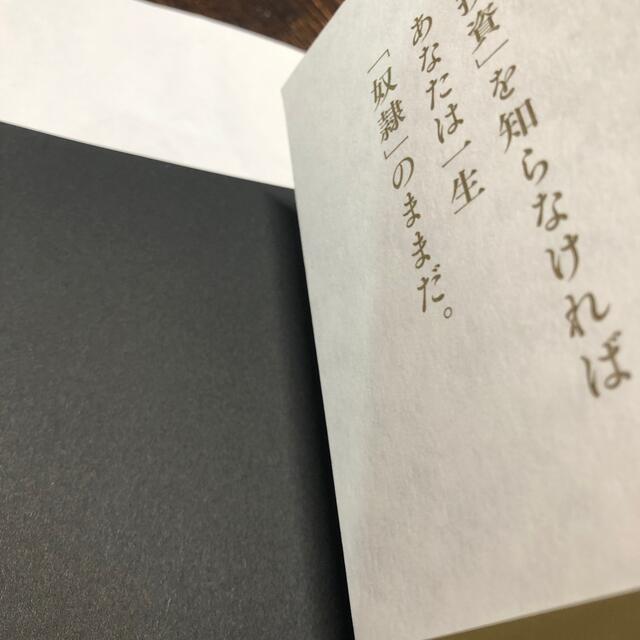 資」を知らなければ
あなたは一生
「奴隷」のままだ。